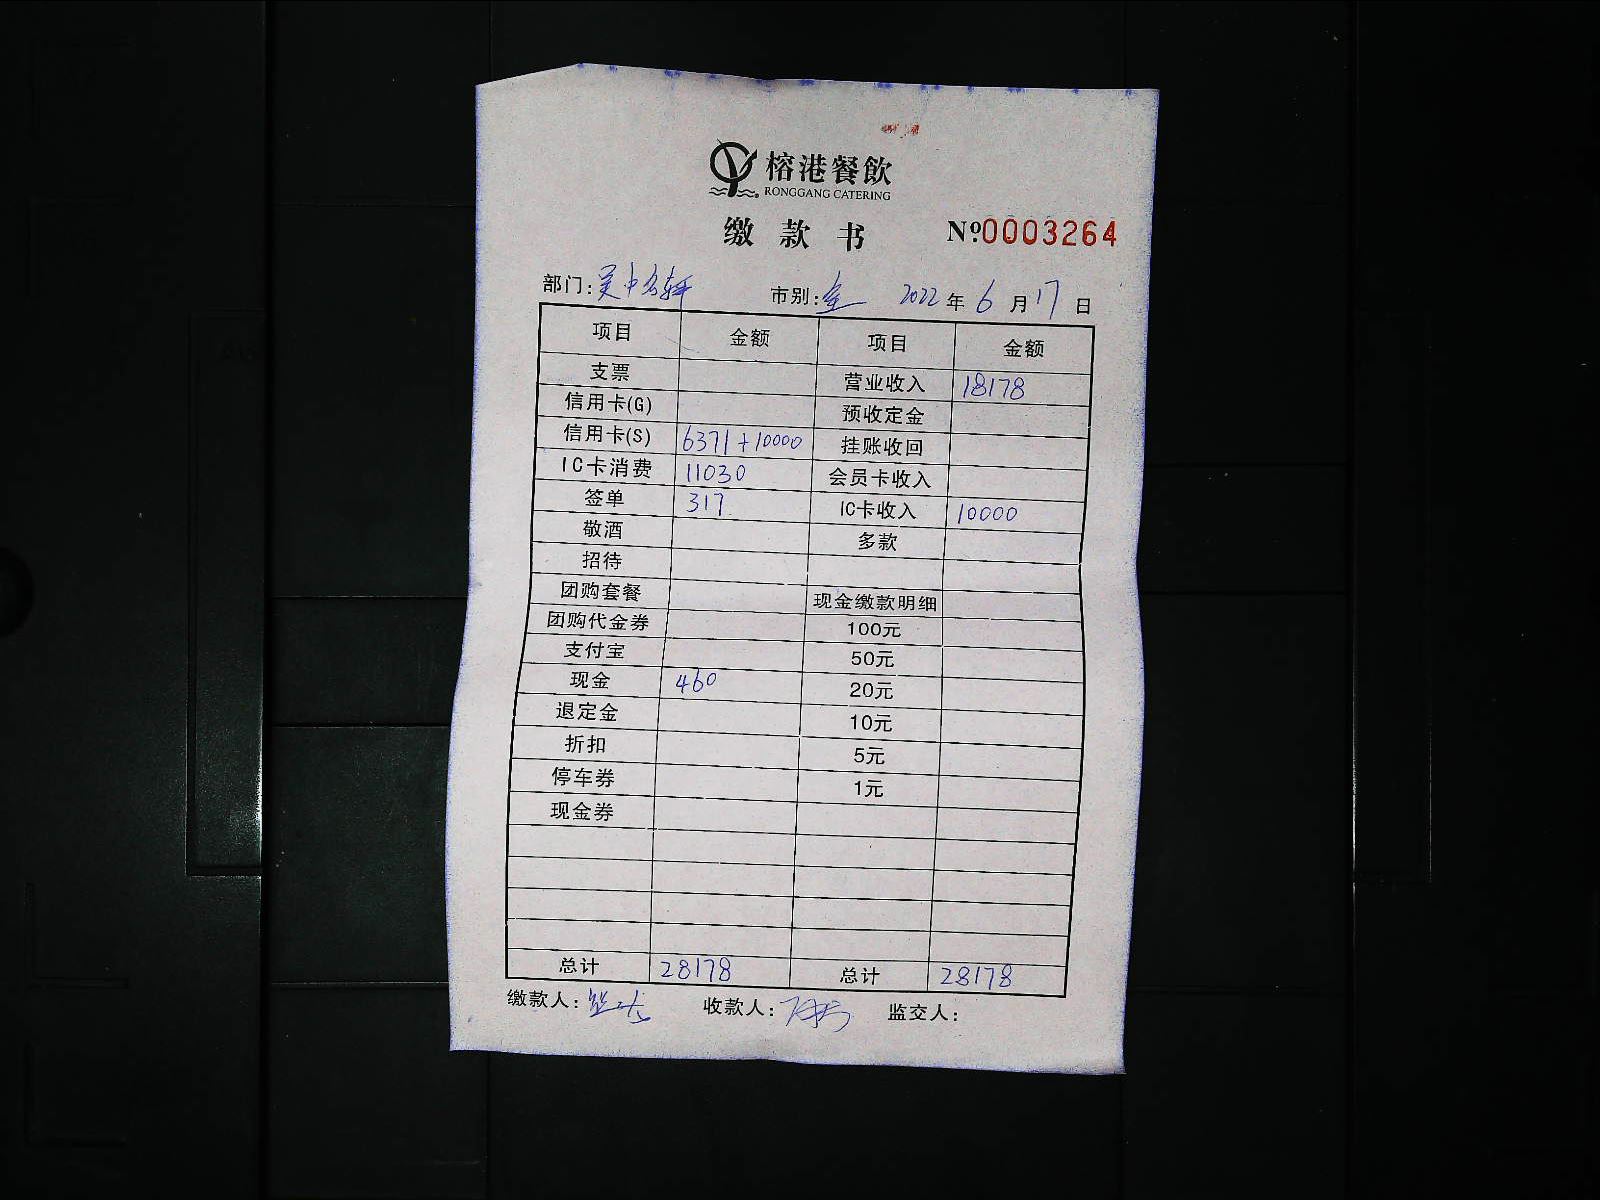 榕港餐飲
RONGGANG CATERING
缴款书 Nº:0003264
部门:吴中名轩 市别:全 2022年6月17日
项目 金额 项目 金额
支票 营业收入 18178
信用卡(G) 预收定金
信用卡(S) 6371+10000 挂账收回
IC卡消费 11030 会员卡收入
签单 317 IC卡收入 10000
敬酒 多款
招待
团购套餐 现金缴款明细
团购代金券 100元
支付宝 50元
现金 460 20元
退定金 10元
折扣 5元
停车券 1元
现金券
总计 28178 总计 28178
缴款人: 收款人: 监交人: